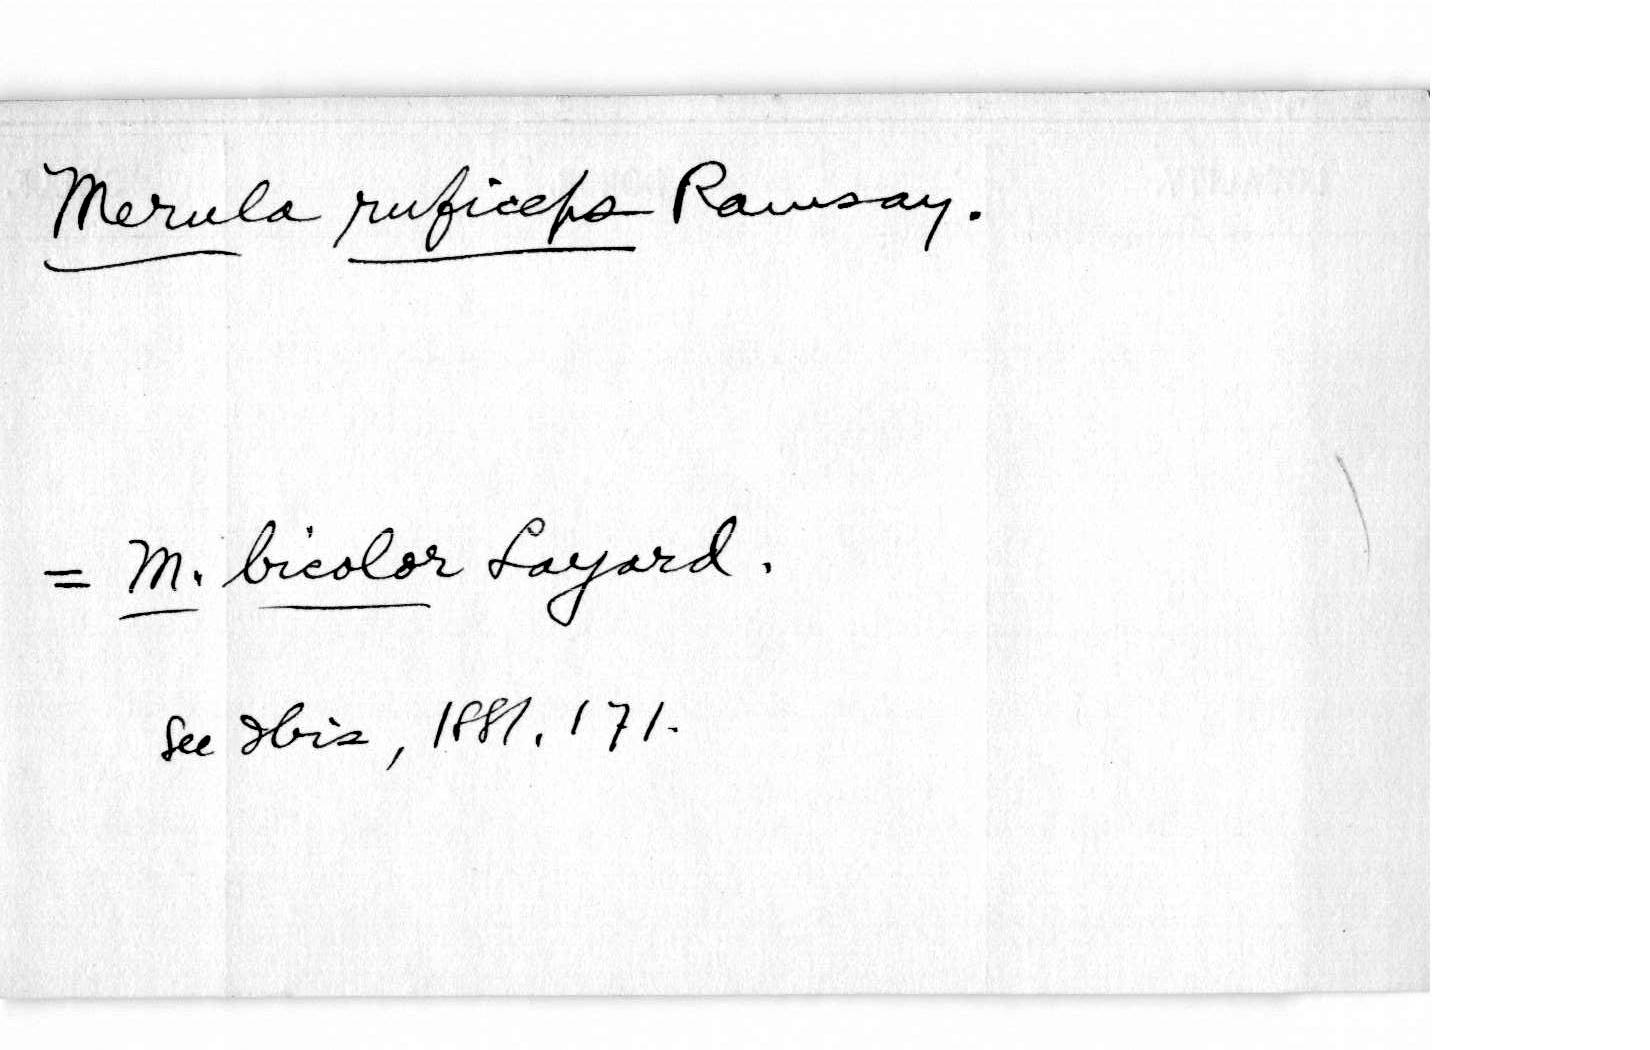 Merula ruficeps Ramsay.
= M. bicolor Layard.
See Ibis, 1881, 171.